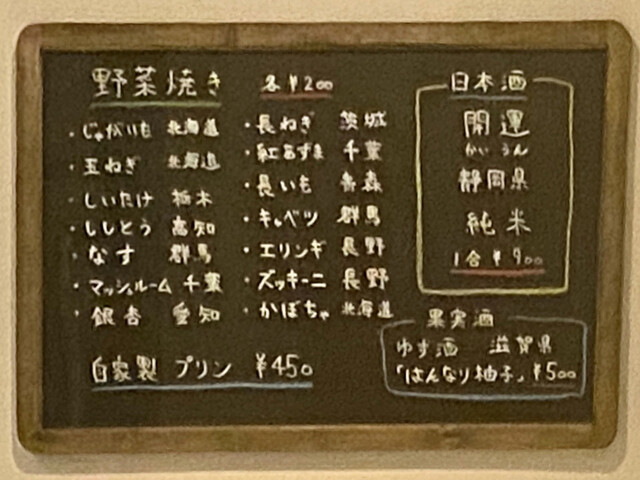 野菜焼き 各¥200
・じゃがいも 北海道
・玉ねぎ 北海道
・しいたけ 栃木
・ししとう 高知
・なす 群馬
・マッシュルーム 千葉
・銀杏 愛知
・長ねぎ 茨城
・紅あずま 千葉
・長いも 青森
・キャベツ 群馬
・エリンギ 長野
・ズッキーニ 長野
・かぼちゃ 北海道
自家製 プリン ¥450
日本酒
開運
かいうん
静岡県
純米
1合 ¥900
果実酒
ゆず酒 滋賀県
「はんなり柚子」¥500